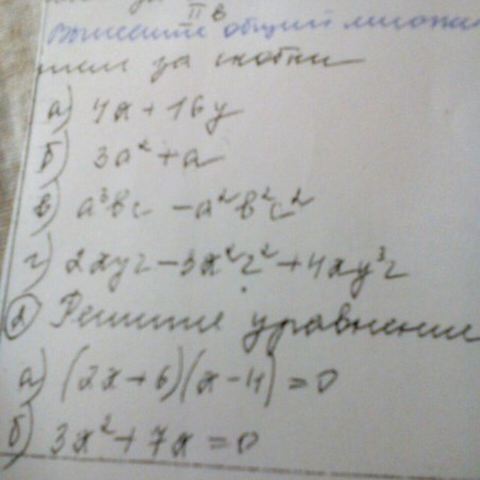 за
II в
Вынесите общий множи
тель за скобки
а) 4x + 16y
б) 3a² + a
в) a³bc - a²b²c²
г) 2xyz - 3x²z² + 4xy³z
② Решите уравнение
а) (2x + 6)(x - 4) = 0
б) 3x² + 7x = 0